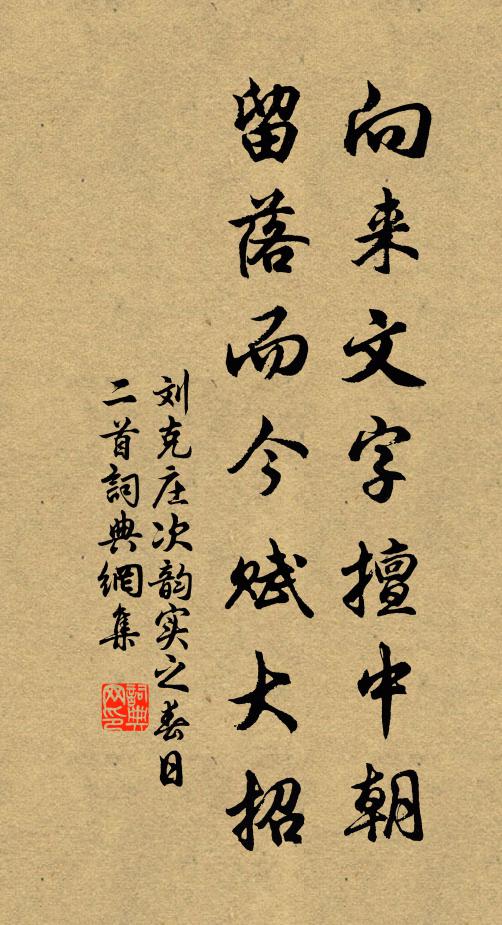 向来文字擅中朝
留落而今赋大招
刘克庄次韵实之春日
二首詞典網集
詞典网印